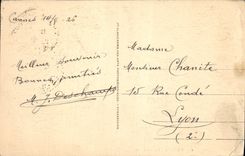 Cannes 14/9-26
Meilleur souvenir
Bonnes amitiés
M. J. Deschamps
Madame
Monsieur Chanite
15 Rue Condé
Lyon
(2e)